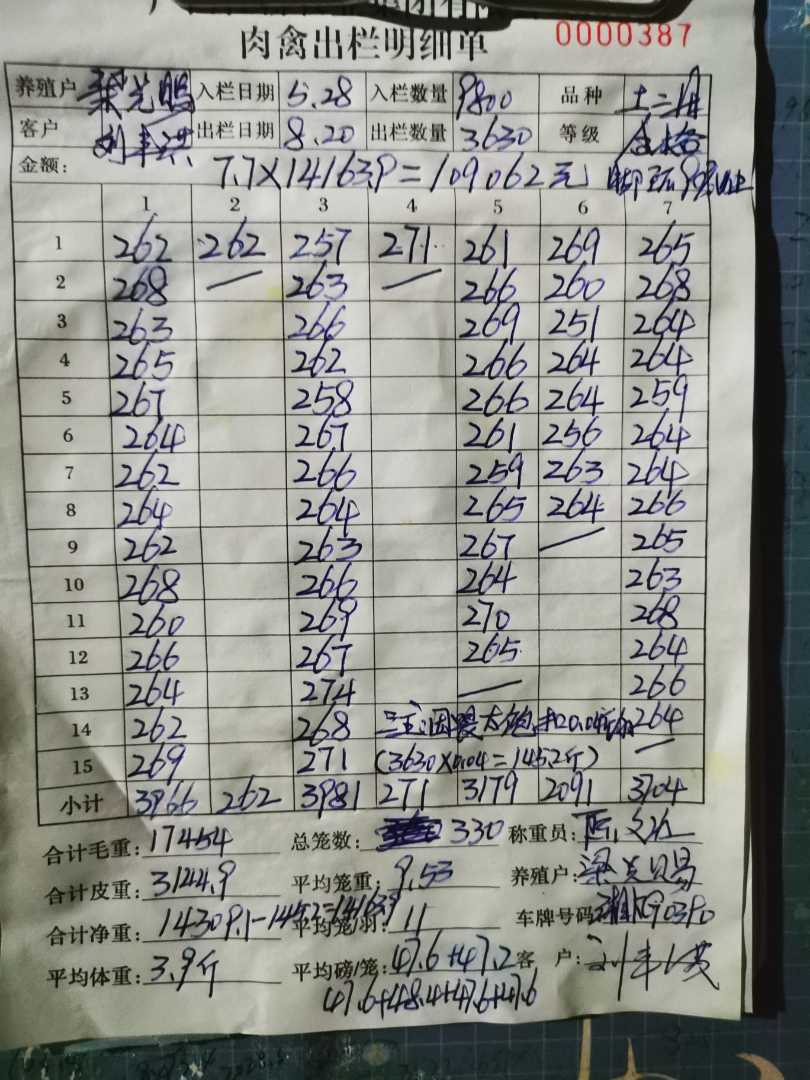 肉禽出栏明细单 0000387
养殖户 梁光赐 入栏日期 5.28 入栏数量 9800 品种 土二
客户 出栏日期 8.20 出栏数量 3630 等级 合格
金额: 7.7×14163.9=109062元
1 2 3 4 5 6 7
1 262 262 257 271 261 269 265
2 268 — 263 — 266 260 268
3 263 266 269 251 264
4 265 262 266 264 264
5 267 258 266 264 259
6 264 267 261 256 264
7 262 266 259 263 264
8 264 264 265 264 266
9 262 263 267 — 265
10 268 266 264 263
11 260 269 270 268
12 266 267 265 264
13 264 274 — 266
14 262 268 264
15 269 271 (3630×0.04=145.2斤) —
小计 3966 262 3981 271 3179 2091 3704
合计毛重: 17454 总笼数: 330 称重员:
合计皮重: 3144.9 平均笼重: 9.53 养殖户:
合计净重: 14309.1-145.2=14163.9 平均笼/羽: 11 车牌号码
平均体重: 3.9斤 平均磅/笼: 47.6+47.2 客 户:
47.6+48.4+47.6+47.6